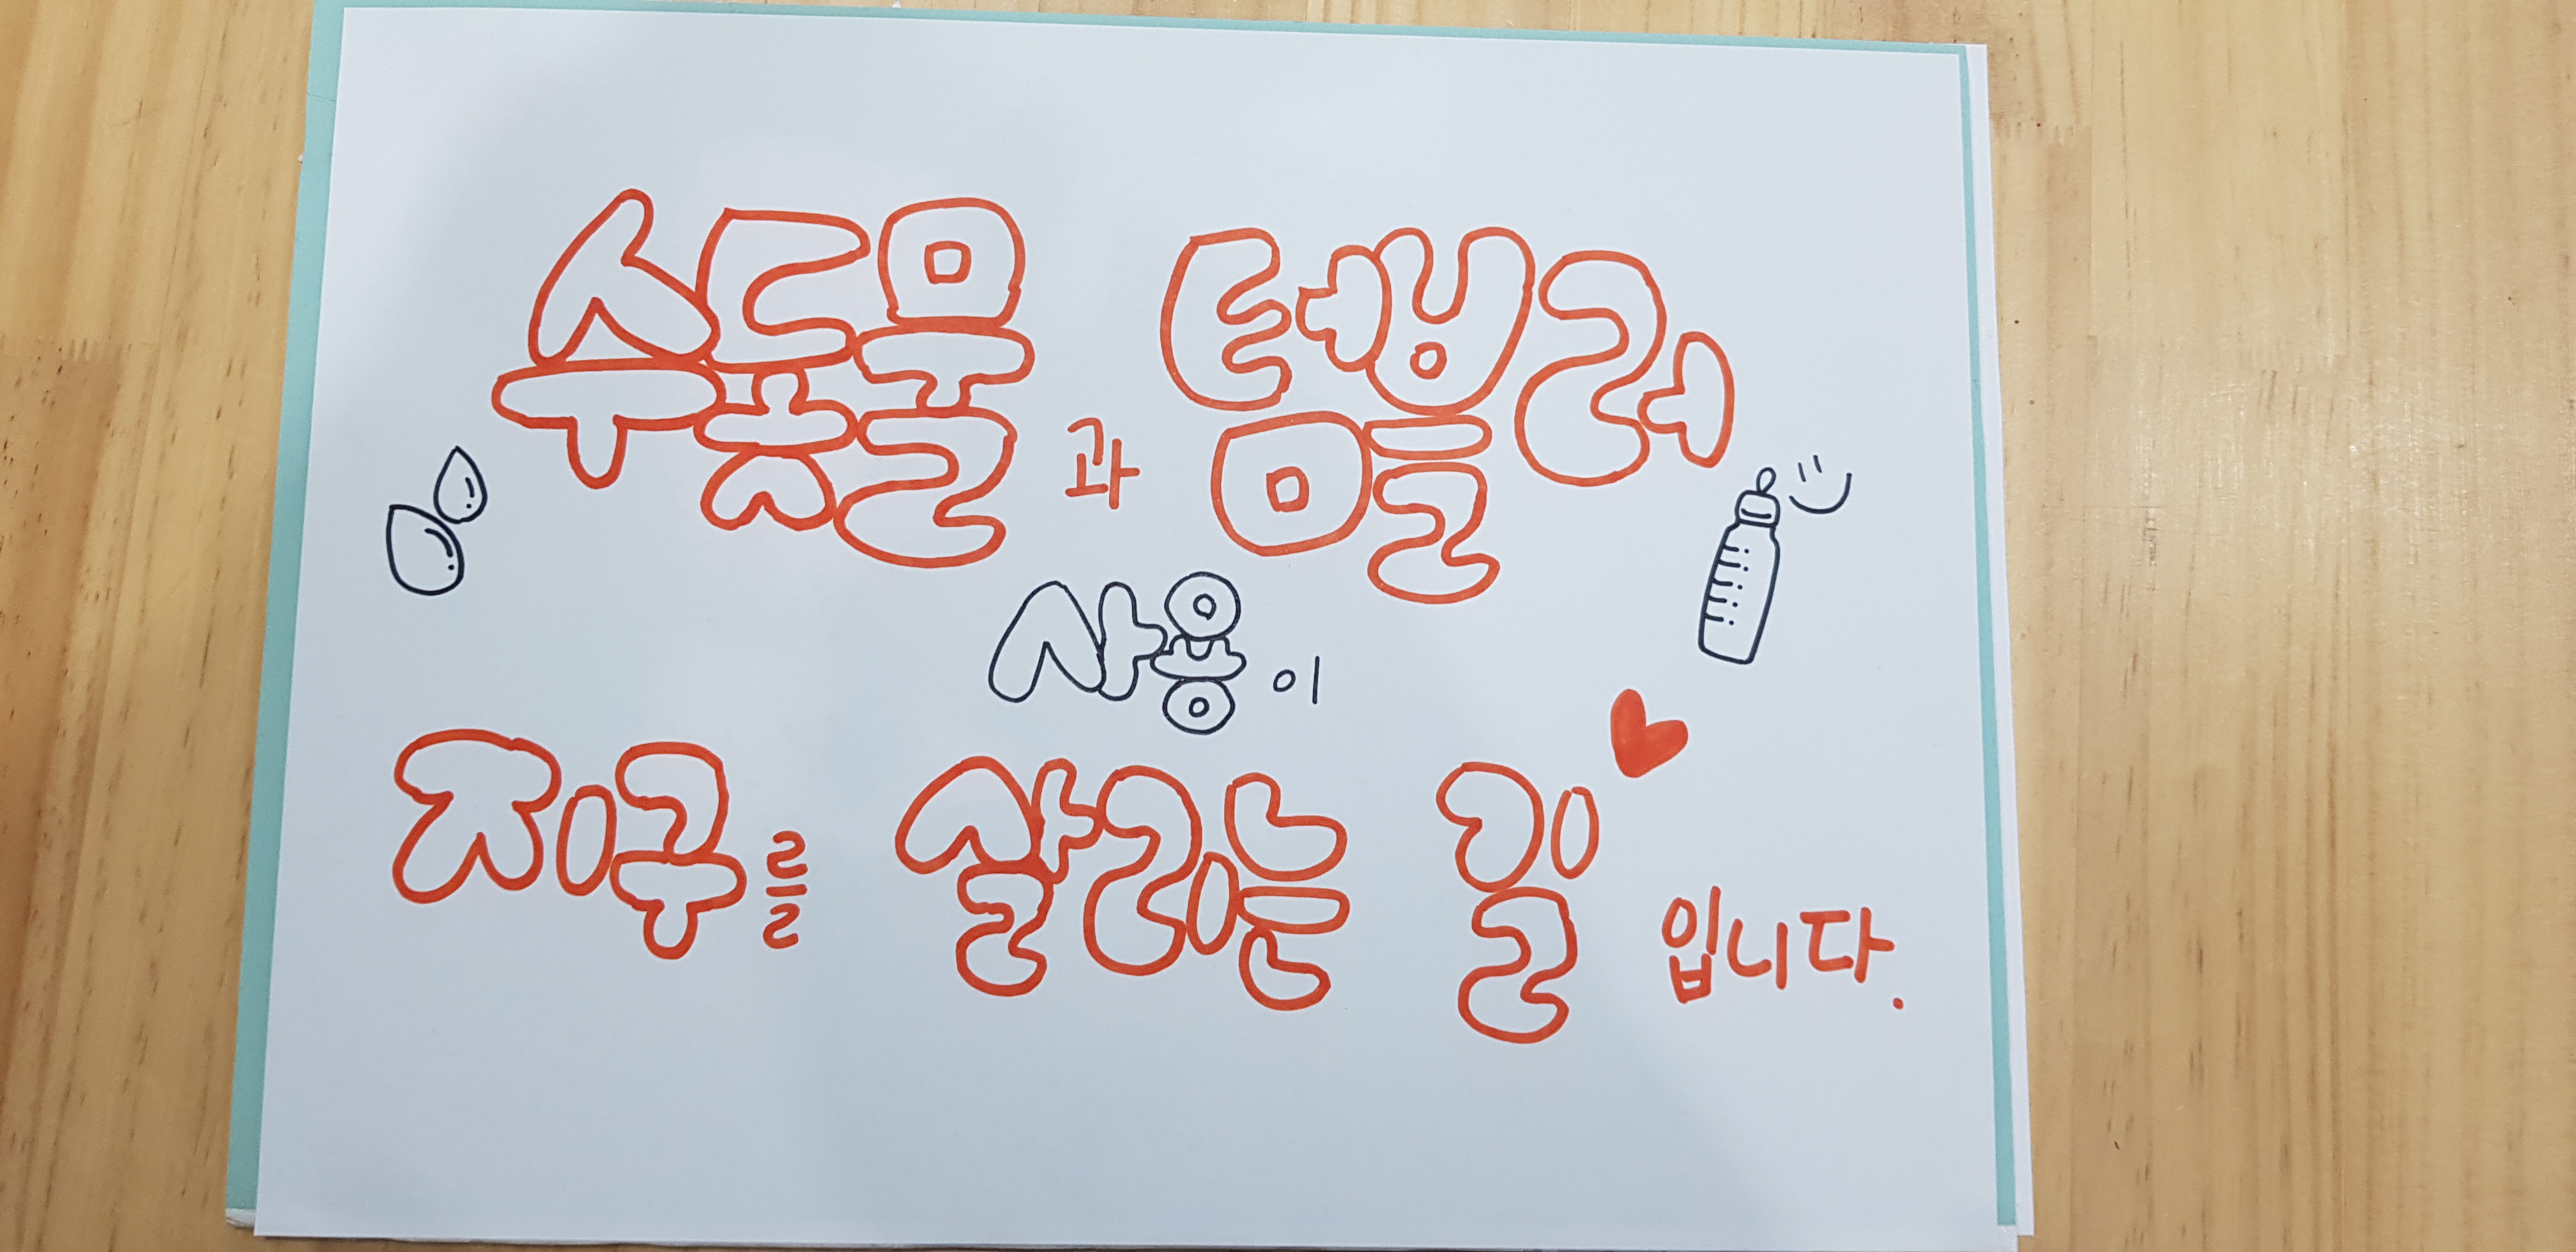 수돗물과 텀블러
사용이
지구를 살리는 길입니다.